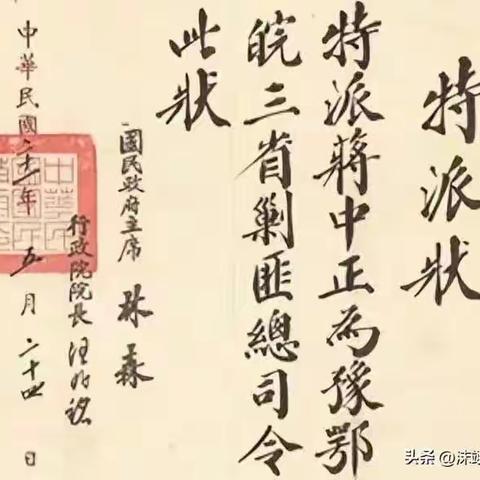 特派狀
特派蔣中正為豫鄂
皖三省剿匪總司令
此狀
國民政府主席 林森
行政院院長 汪兆銘
中華民國二十一年五月二十四日
头条 @沫